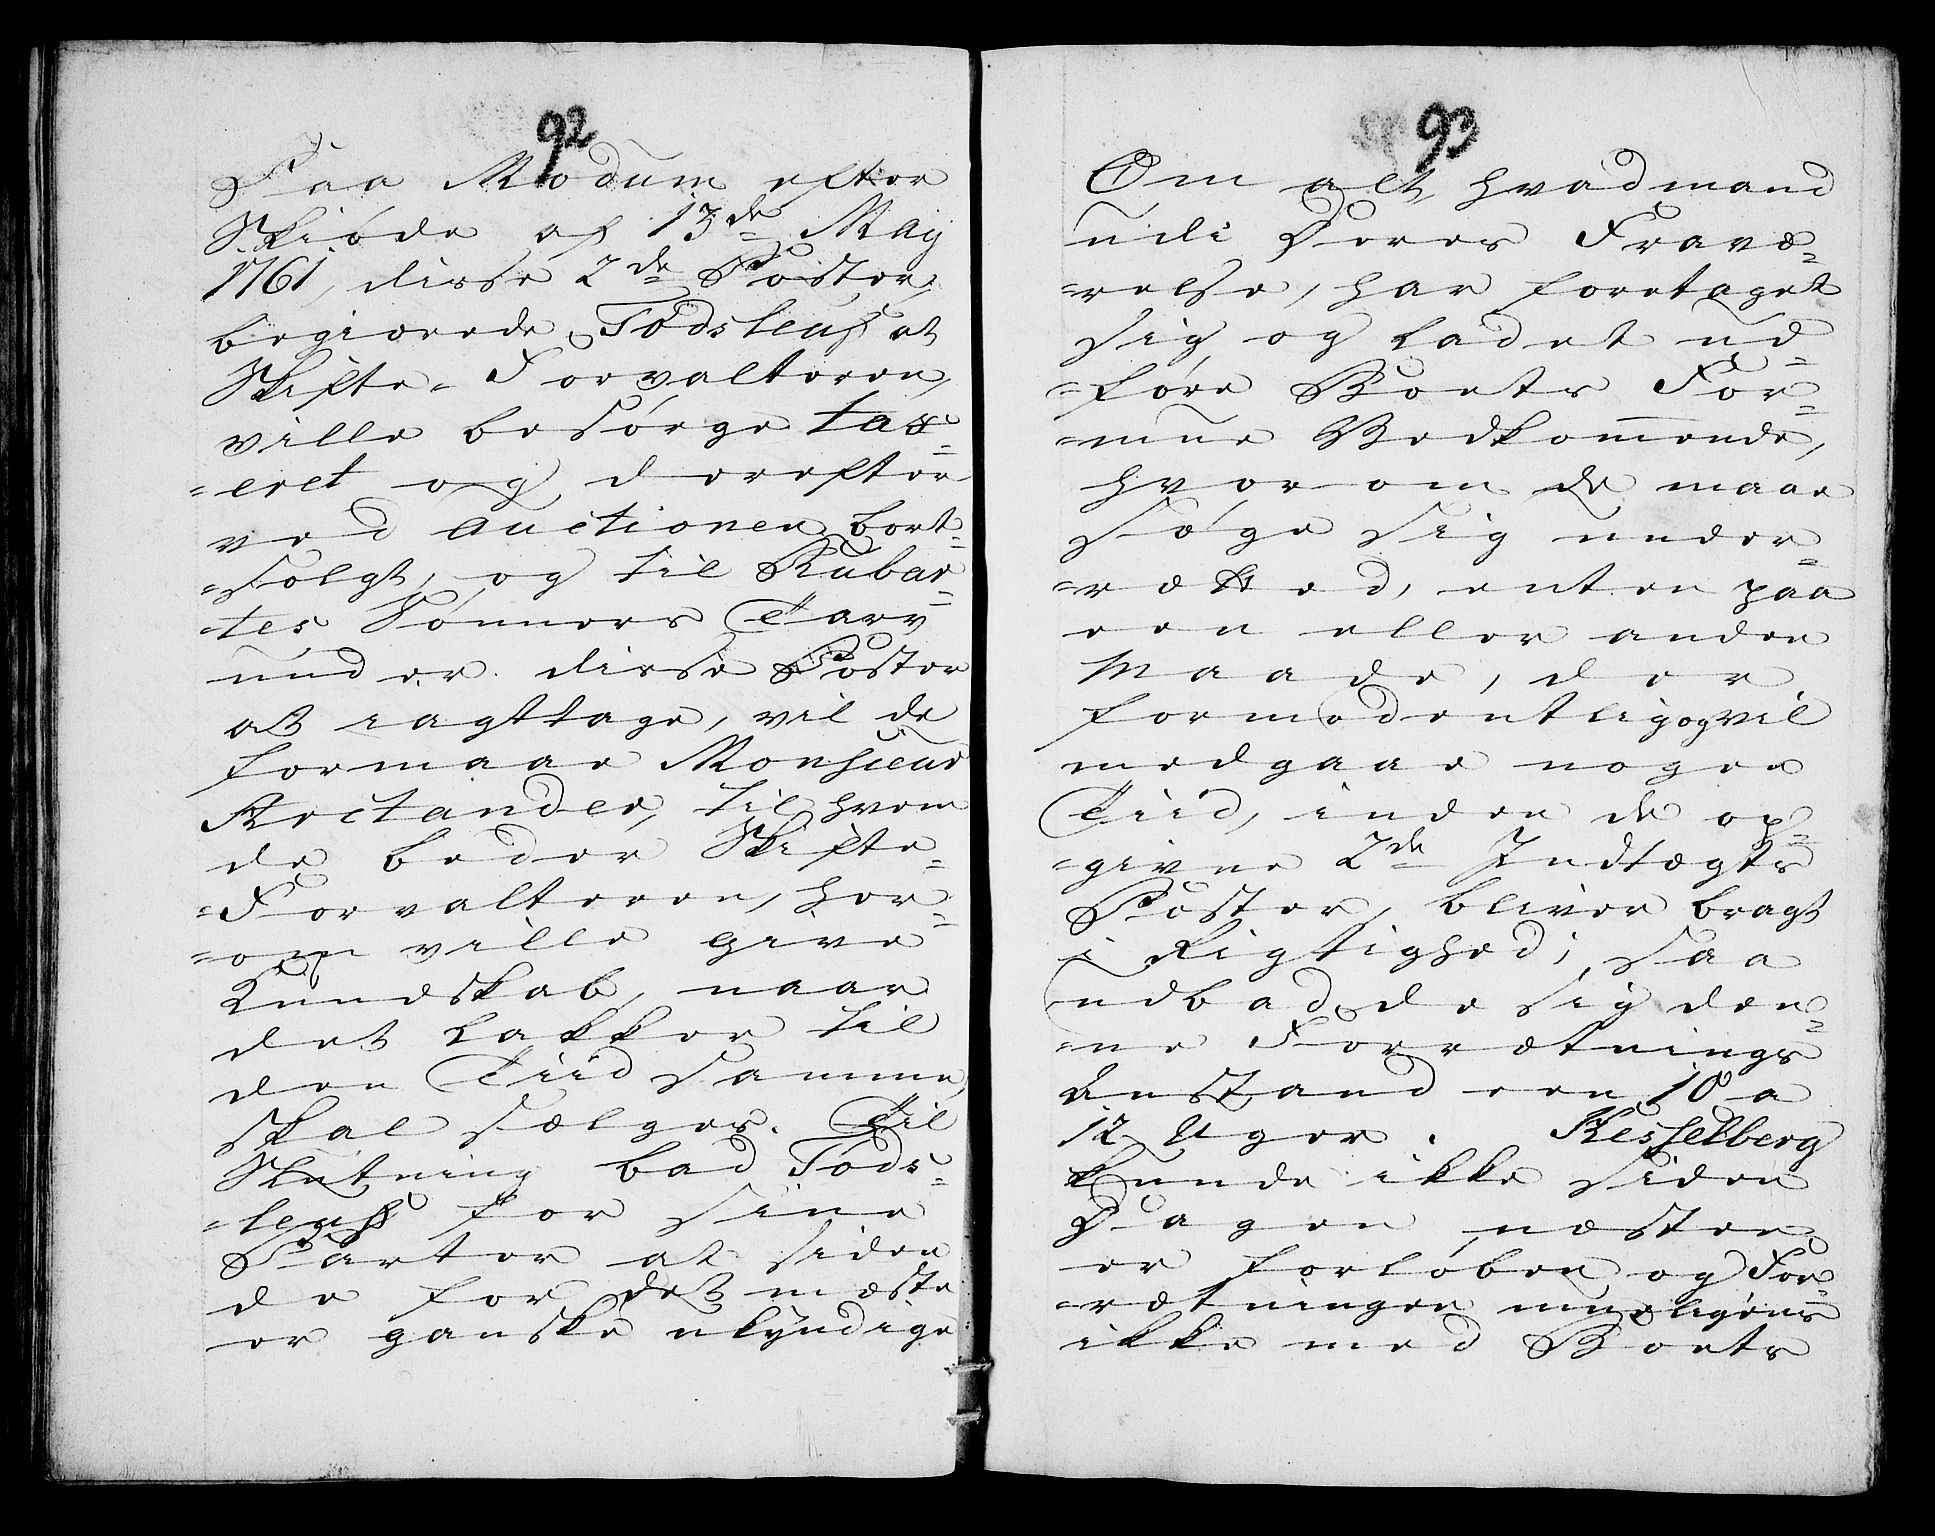 92
Paa Modum efter
Skiøde af 13de May
1761, disse 2de Poster
begiærede Tødsleuf at
Skifte-Forvalteren,
ville besørge tax-
=eret og derefter
ved Auctionen bort-
=solgt, og til Rubar-
=tes Sønners Tarv
under disse Poster
at iagttage, vil de
formaae Monsieur
Arctander, til hvem
de beder Skifte-
=Forvalteren, her-
=om ville give
Kundskab, naar
det lakker til
den Tiid samme
skal sælges. Til
Slutning bad Tøds-
=leuf for sine
Parter at siden
de for det mæste
er ganske ukyndige
93
Om alt, hvad mand
udi Deres Fravæ-
=relse, har foretaget
sig og ladet ud-
=føre Boets For-
=mue Vedkommende,
hvorom de maae
søge sig under-
=rætted, enten paa
een eller anden
Maade, der
formodentlig og vil
medgaae nogen
Tiid, inden de op-
=givne 2de Indtægts
Poster, bliver bragt
i Rigtighed; saa
udbad de sig den-
=ne Forrætnings
Anstand een 10 a
12 Uger. Kesselberg
kunde ikke siden
Dagen næsten
er forløben og For-
=rætningen mueligens
ikke med Boets